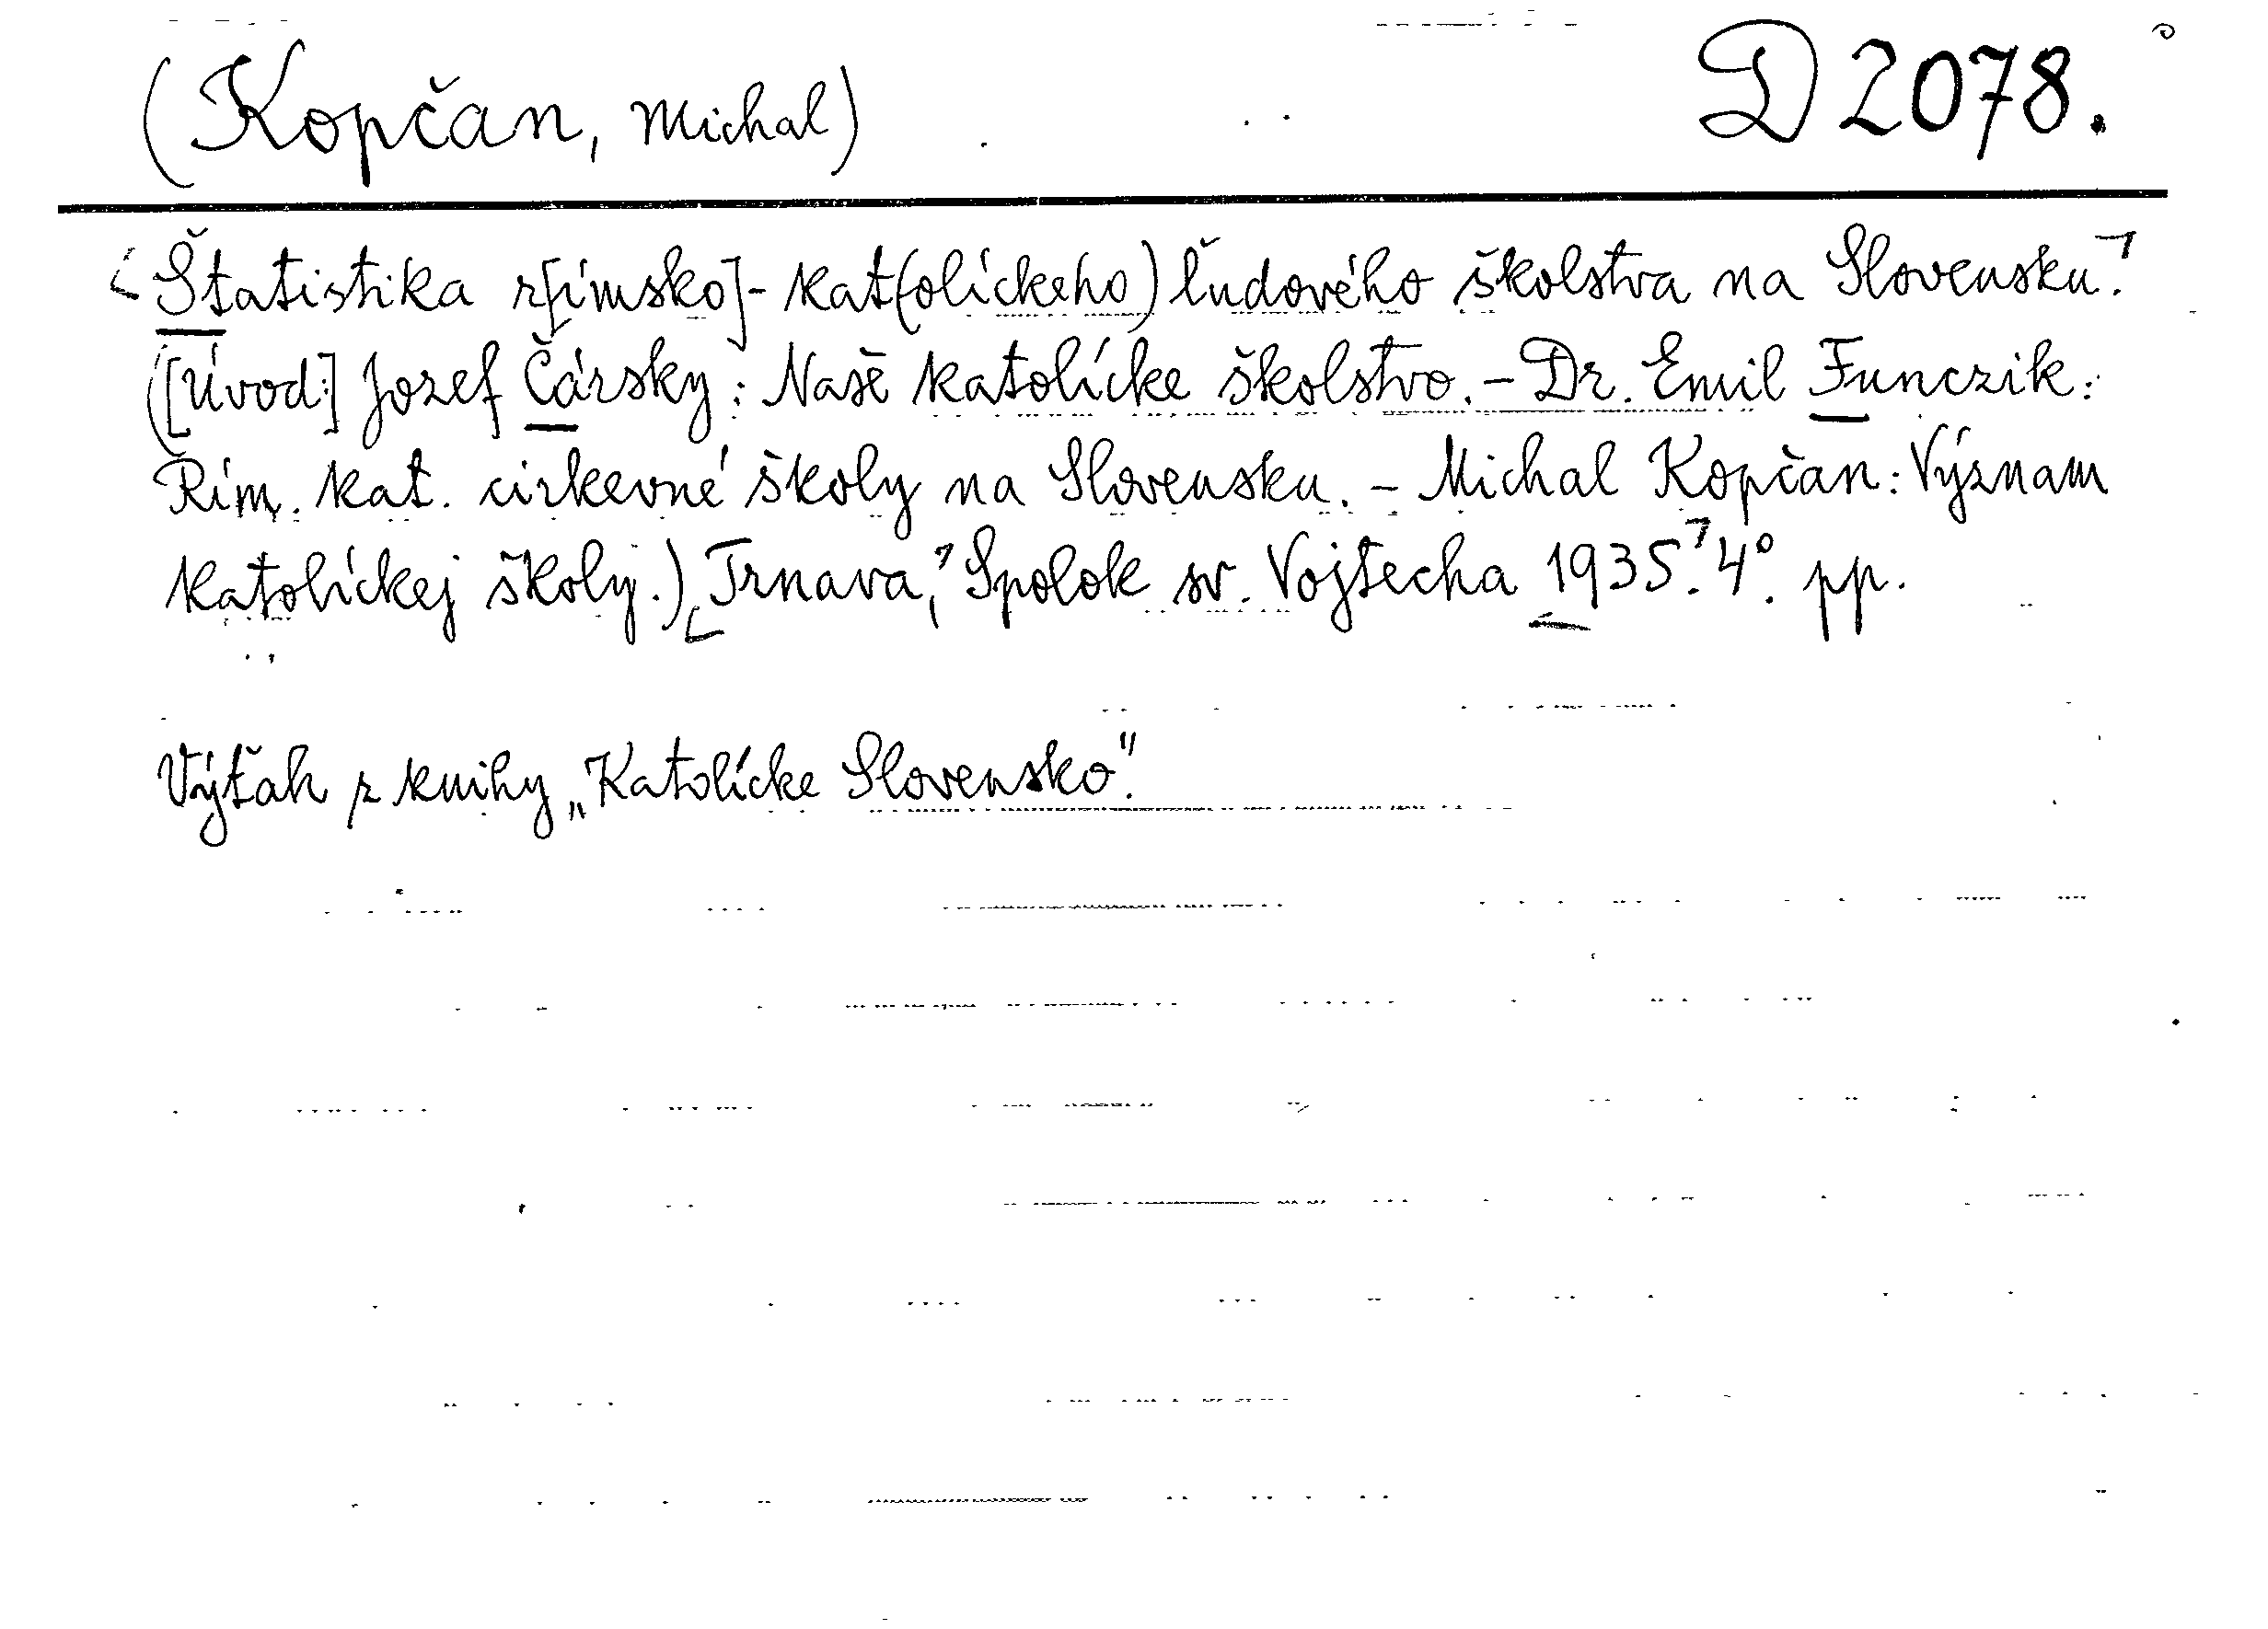 (Kopčan, Michal) D 2078.
Štatistika r[ímsko]-kat(olíckeho) ľudového školstva na Slovensku.
([Úvod:] Jozef Čársky: Naše katolícke školstvo. – Dr. Emil Funczik:
Řím. kat. cirkevné školy na Slovensku. – Michal Kopčan: Význam
katolíckej školy.) Trnava, Spolok sv. Vojtecha 1935. 4°. pp.
Výťah z knihy „Katolícke Slovensko".